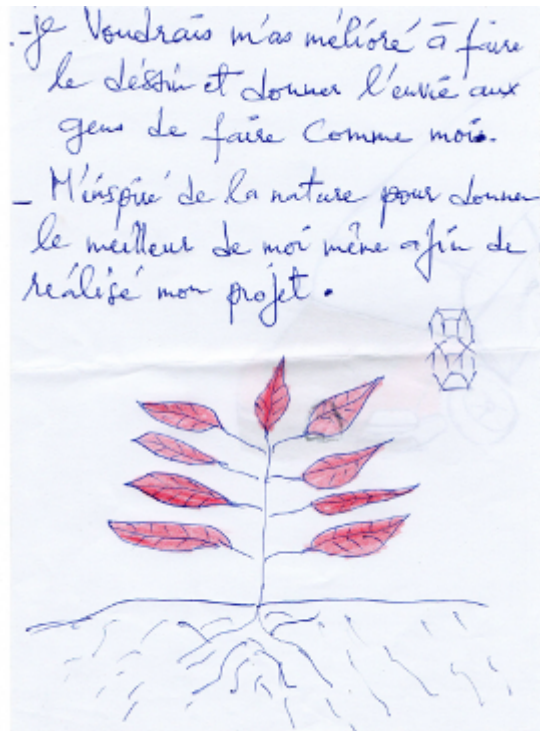 -je Voudrais m'as mélioré à faire
le déssin et donner l'envie aux
gens de faire Comme moi.
_ M'inspiré de la nature pour donner
le meilleur de moi même afin de
réalisé mon projet.